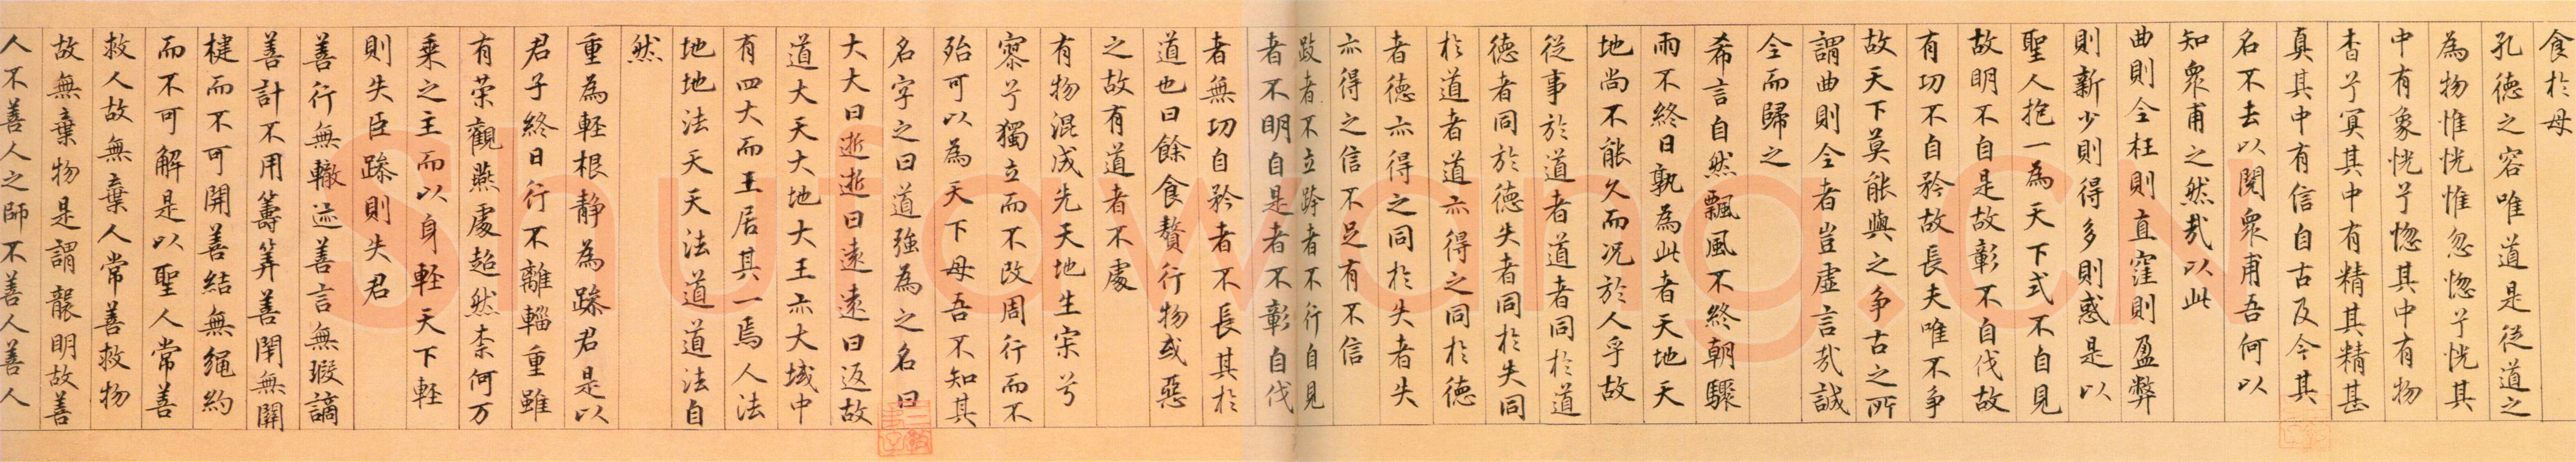 食於母
孔德之容唯道是從道之
為物惟恍惟忽惚兮恍其
中有象恍兮惚其中有物
杳兮冥其中有精其精甚
真其中有信自古及今其
名不去以閱衆甫吾何以
知衆甫之然哉以此
曲則全枉則直窪則盈弊
則新少則得多則惑是以
聖人抱一為天下式不自見
故明不自是故彰不自伐故
有功不自矜故長夫唯不爭
故天下莫能與之爭古之所
謂曲則全者豈虛言哉誠
全而歸之
希言自然飄風不終朝驟
雨不終日孰為此者天地天
地尚不能久而况於人乎故
從事於道者道者同於道
德者同於德失者同於失同
於道者道亦得之同於德
者德亦得之同於失者失
亦得之信不足有不信
跂者不立跨者不行自見
者不明自是者不彰自伐
者無功自矜者不長其於
道也曰餘食贅行物或惡
之故有道者不處
有物混成先天地生宗兮
寥兮獨立而不改周行而不
殆可以為天下母吾不知其
名字之曰道強為之名曰
大大曰逝逝曰遠遠曰返故
道大天大地大王亦大域中
有四大而王居其一焉人法
地地法天天法道道法自
然
重為輕根靜為躁君是以
君子終日行不離輜重雖
有荣觀燕處超然柰何万
乘之主而以身輕天下輕
則失臣躁則失君
善行無轍迹善言無瑕謫
善計不用籌筭善閉無關
楗而不可開善結無繩約
而不可解是以聖人常善
救人故無棄人常善救物
故無棄物是謂襲明故善
人不善人之師不善人善人
Shufawang.cn